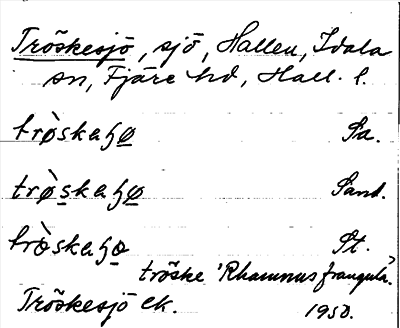 Tröskesjö, sjö, Hallen, Idala
sn, Fjäre hd, Hall. l.
trø̀skaɧø Pa.
trø̀skaɧø Sand.
trø̀skaɧø St.
tröske 'Rhamnus frangula'.
Tröskesjö ek. 1950.